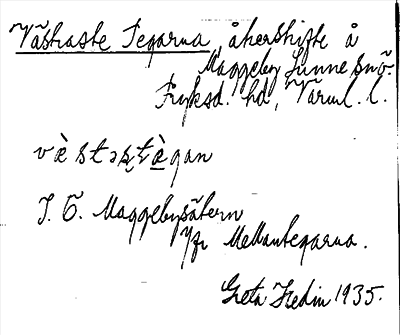 Västraste Tegarna, åkerskifte å
Maggeby Sunne snö.
Fryksd. hd, Värml. l.
I. Ö. Maggebysätern
Jfr Mellantegarna.
Greta Hedin 1935.